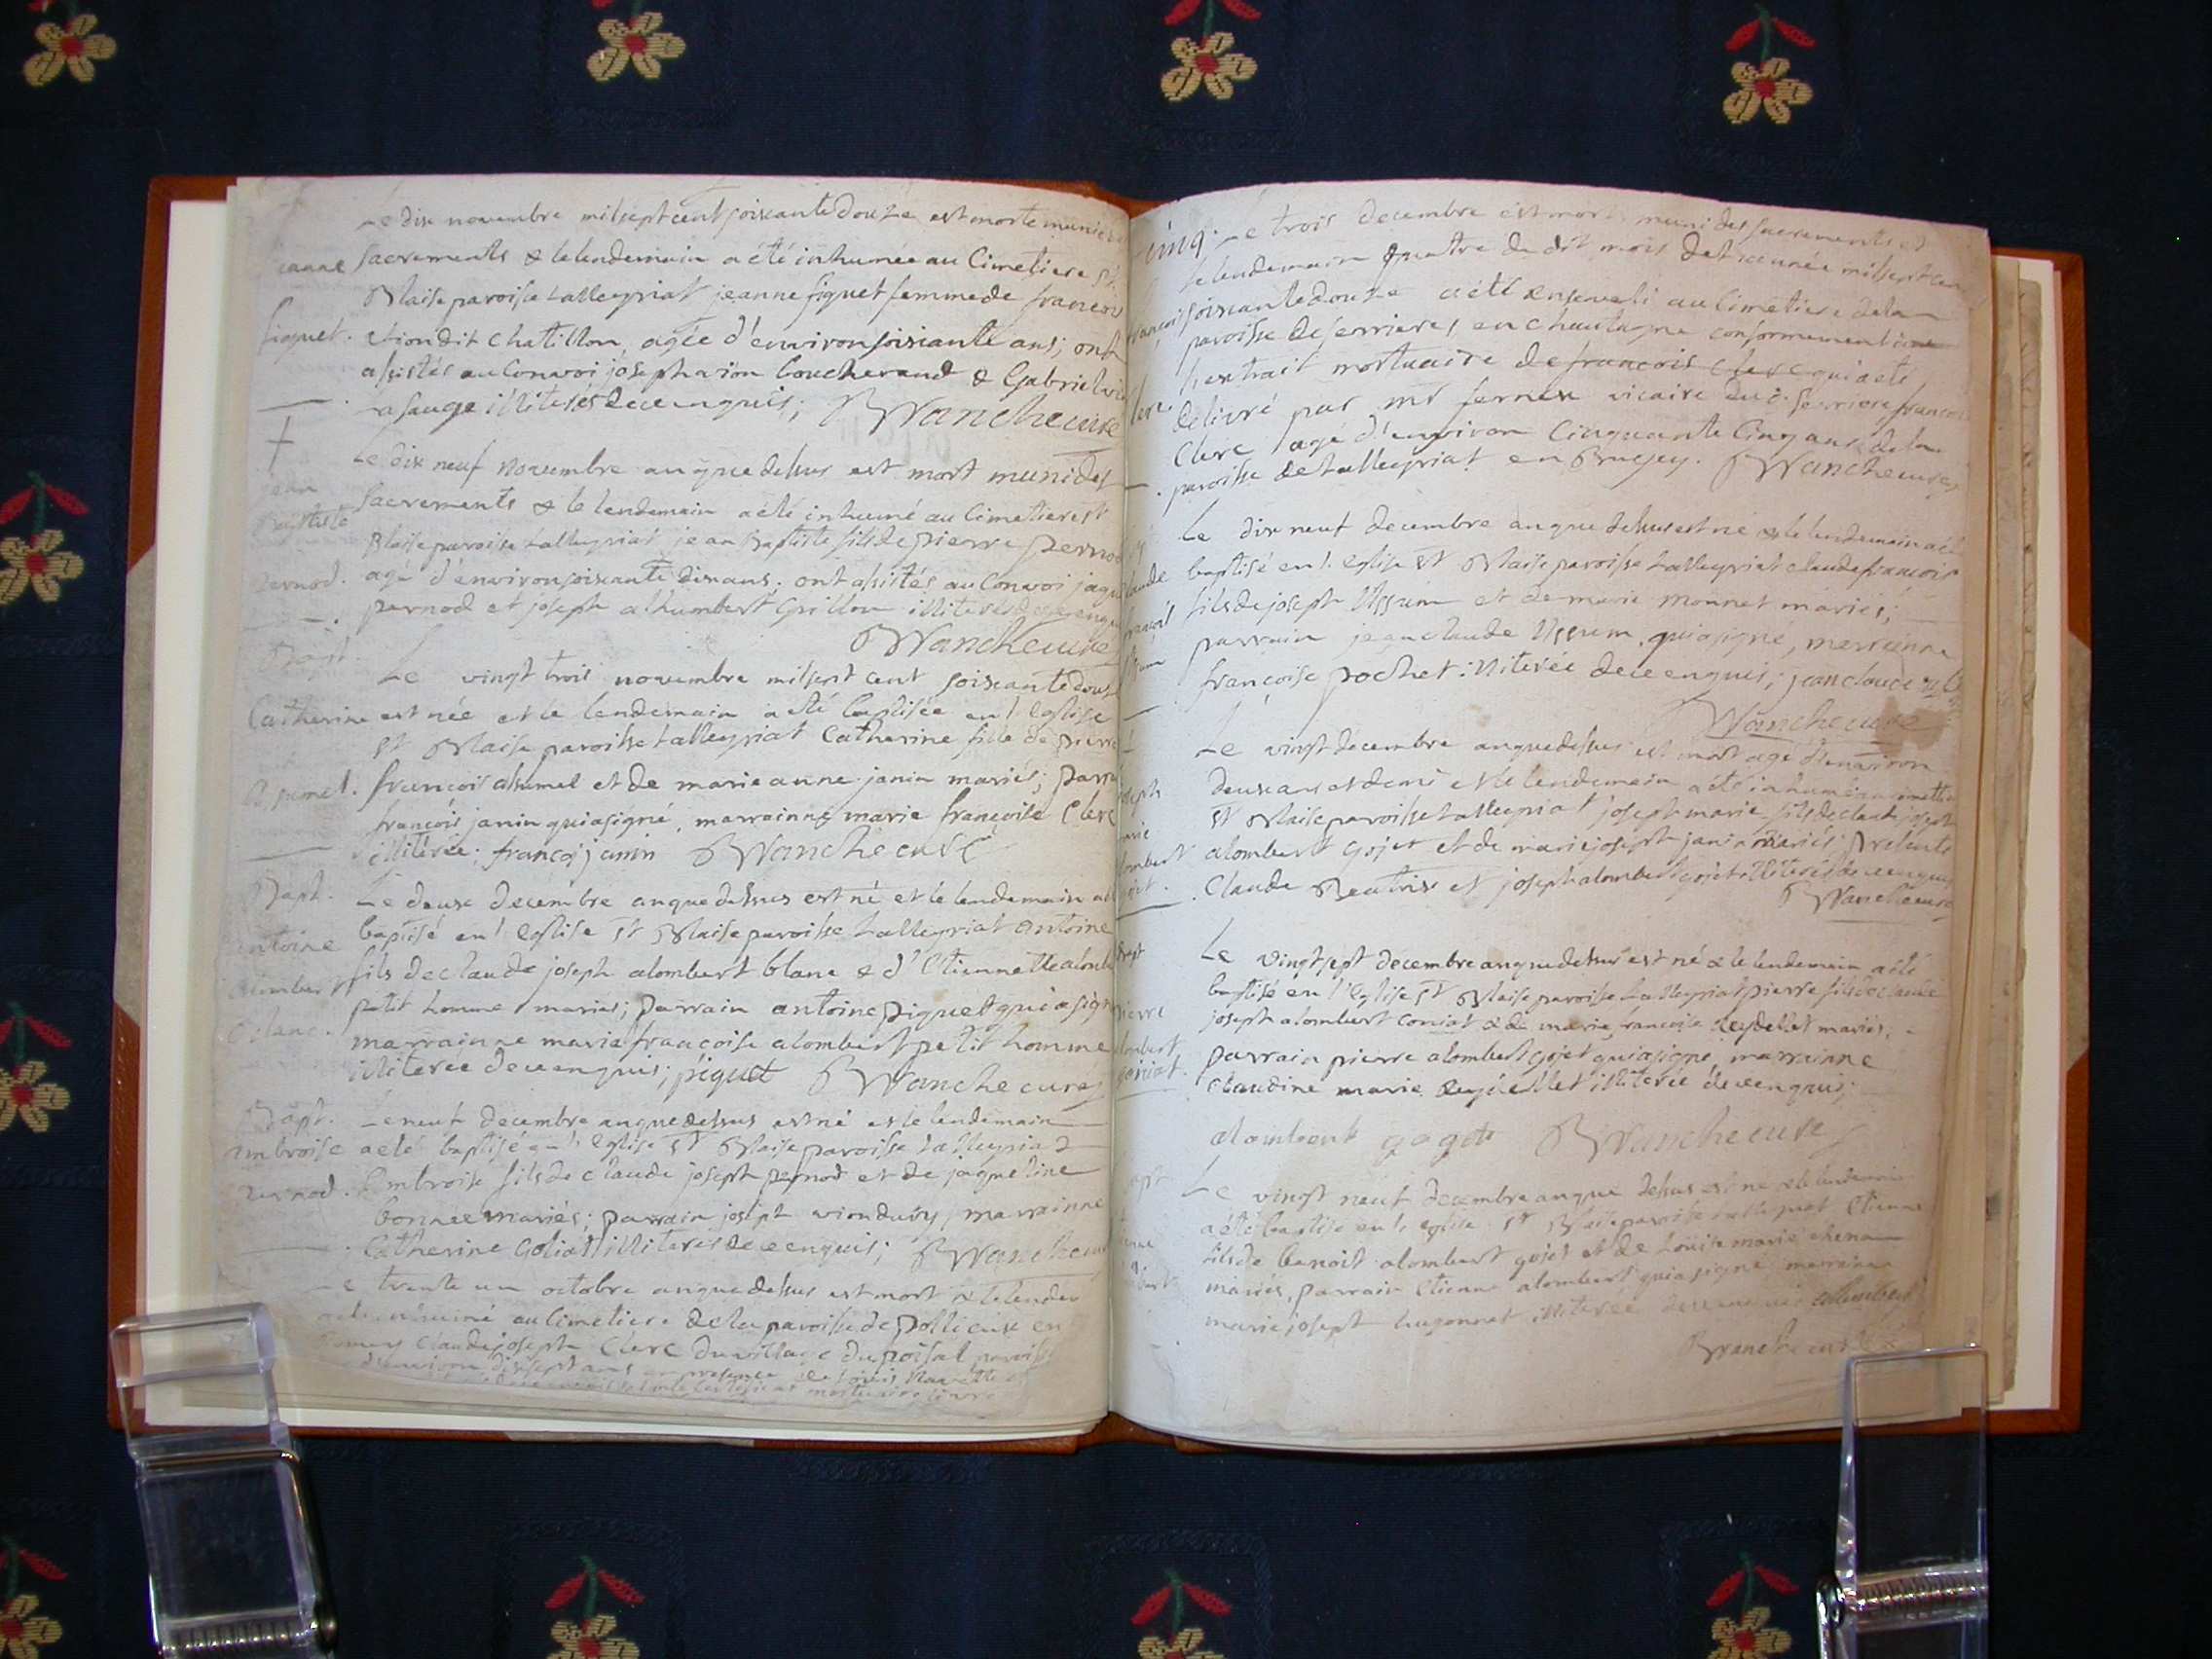 Le dix novembre mil sept cent soixante douze est morte munie
jeanne
sacrements & le lendemain a été inhumée au Cimetiere St
Blaise paroisse talleyriat jeanne piquet femme de francois
piquet. dit chatillon, agée d'environ soixiante ans; ont
assistés au Convoi joseph Coucherand & Gabriel
illiterés de ce enquis; Blanche curé
Le dix neuf novembre an que dessus est mort muni des
jean
sacrements & le lendemain a été inhumé au Cimetiere St
Baptiste
Blaise paroisse talleyriat jean Baptiste fils de pierre pernod
pernod. agé d'environ soixante dix ans. ont assistés au Convoi
pernod et joseph alhumbert Grillon illiterés de ce enquis
Blanche curé
Bapt.
Le vingt trois novembre mil sept cent soixante douze
Catherine est née et le lendemain a été baptisée en l'eglise
St Blaise paroisse talleyriat Catherine fille de pierre
francois et de marie anne janin mariés;
francois janin qui a signé, marrainne marie francoise Clerc
illiterée. françoi janin Blanche curé
Bapt. Le deux decembre an que dessus est né et le lendemain a été
antoine baptisé en l'eglise St Blaise paroisse talleyriat antoine
alombert fils de claude joseph alombert blanc & d'Etiennette
blanc. petit homme mariés; parrain antoine piquet qui a signé
marrainne marie francoise alombert petit homme
illiterée de ce enquis; piquet Blanche curé
Bapt. Le neuf decembre an que dessus est né et le lendemain
ambroise a été baptisé en l'eglise St Blaise paroisse talleyriat
pernod. Ambroise fils de claude joseph pernod et de jaqueline
mariés; parrain joseph marrainne
Catherine Goliat illiterés de ce enquis; Blanche curé
Le trente un octobre an que dessus est mort & le lendemain
au Cimetiere de la paroisse de pollieux en
claude joseph Clerc du village du poisat paroisse
d'environ dix sept ans en presence de
cinq. Le trois decembre est mort muni des sacrements et
le lendemain quatre du dit mois de l'année mil sept cent
françois soixante douze a été enseveli au Cimetiere de la
paroisse de serrieres en chautagne conformement
l'extrait mortuaire de francois clerc qui a été
clerc. delivré par mr fernex vicaire du d. serriere francois
Clerc agé d'environ Cinquante Cinq ans de la
paroisse de talleyriat en Bugey. Blanche curé
Le dix neuf decembre an que dessus est né & le lendemain a été
Claude baptisé en l'eglise St Blaise paroisse talleyriat claude francois
françois fils de joseph Ussum et de marie monnet mariés;
parrain jean claude Ussum, qui a signé, marrainne
françoise pochet illiterée de ce enquis; jean claude
Blanche curé
Le vingt decembre an que dessus est mort agé d'environ
deux ans et demi et le lendemain a été inhumé au cimetiere
joseph St Blaise paroisse talleyriat joseph marie fils de claude joseph
marie alombert gojet et de marie joseph janin mariés presents
gojet. Claude Beatrix et joseph alombert gojet illiterés de ce enquis
Blanche curé
Bapt Le vingt sept decembre an que dessus est né & le lendemain a été
baptisé en l'eglise St Blaise paroisse talleyriat pierre fils de claude
pierre joseph alombert coniat & de marie francoise reydellet mariés;
alombert parrain pierre alombert gojet qui a signé marrainne
coniat. Claudine marie reydellet illiterée de ce enquis;
alombert goget Blanche curé
Bapt Le vingt neuf decembre an que dessus est né & le lendemain
a été baptisé en l'eglise St Blaise paroisse talleyriat Etienne
fils de benoit alombert gojet et de Louise marie
mariés, parrain Etienne alombert, qui a signé marrainne
marie joseph hugonnet illiterée de ce enquis alombert
Blanche curé